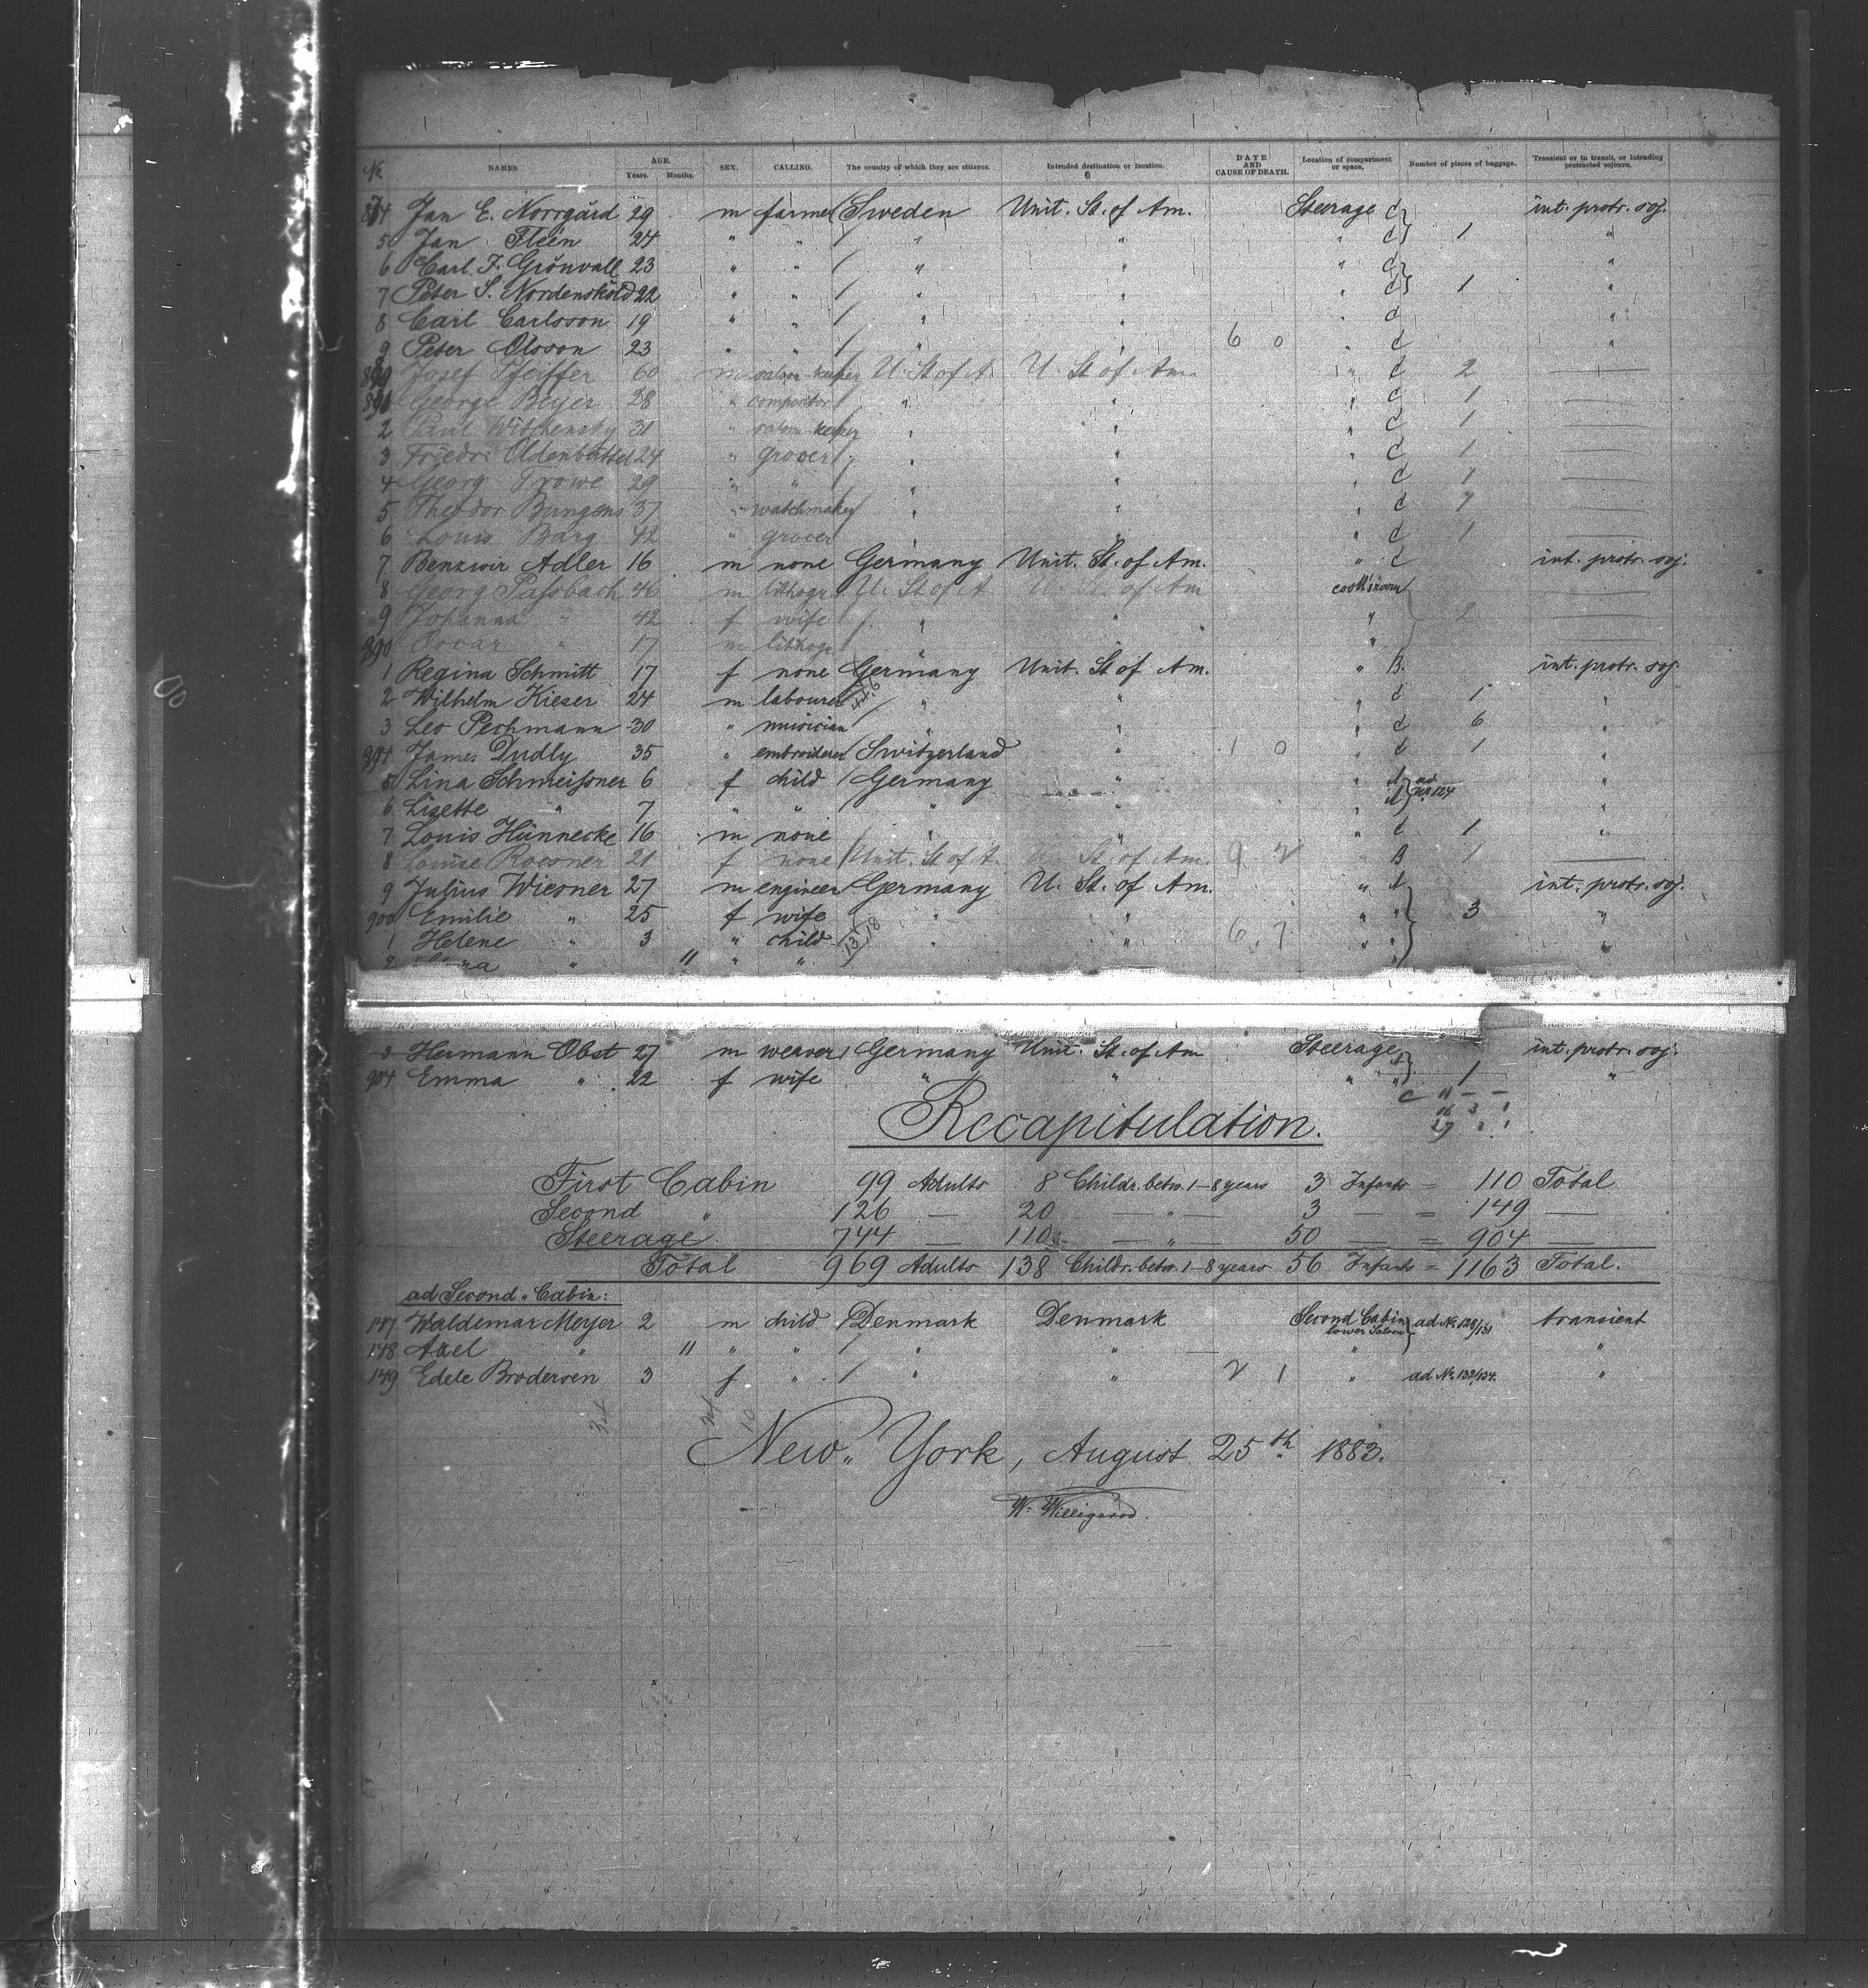 No. NAMES AGE. Years. Months. SEX. CALLING. The country of which they are citizens. Intended destination or location. DATE AND CAUSE OF DEATH. Location of compartment or space. Number of pieces of baggage. Transient or in transit, or intending protracted sojourn.
874 Jan E. Norrgård 29 m farmer Sweden Unit. St. of Am. Steerage C int. protr. soj.
5 Jan Fleen 24 " " " " " C 1 "
6 Carl F. Grönvall 23 " " " " " C "
7 Peter S. Nordensköld 22 " " " " " C 1 "
8 Carl Carlsson 19 " " " " C "
9 Peter Olsson 23 " " " " 6 0 " C "
Josef Pfeiffer 60 m saloon keeper U. St of A. U. St of Am. " C 2 —
George Beyer 28 " compositor " " " C 1 —
2 Paul 31 " saloon keeper " " " C 1 —
3 Friedr. Oldenbüttel 24 " grocer " " " C 1 —
4 Georg Trowe 29 " " " " " C 1 —
5 Theodor Bungens 37 " watchmaker " " " C 1 —
6 Louis Barg 42 " grocer " " C 1 —
7 Adler 16 m none Germany Unit. St. of Am. " C int. protr. soj.
8 Georg Passbach 46 m lithogr U. St of A U. St of Am —
9 Johanna " 42 f wife " " " 2 —
890 Oscar " 17 m lithogr. " " " —
1 Regina Schmitt 17 f none Germany Unit. St of Am. " B. int. protr. soj.
2 Wilhelm Kieser 24 m labourer " " " C 1 "
3 Leo Pechmann 30 " musician " " " C 6 "
894 James Dudly 35 " embroiderer Switzerland " 1 0 " C 1 "
5 Lina Schmeissner 6 f child Germany " " A ad No. 124 "
6 Lizette " 7 " " " " " A "
7 Louis Hünnecke 16 m none " " " C 1 "
8 Louise Roesner 21 f none Unit. St of A. U. St. of Am. 9 2 " B 1 —
9 Julius Wiesner 27 m engineer Germany U. St. of Am. " A int. protr. soj.
900 Emilie " 25 f wife " " " " 3 "
1 Helene " 3 " child " " 6 7 " " "
2 " 11 " "
3 Hermann Obst 27 m weaver Germany Unit. St. of Am Steerage int. protr. soj.
904 Emma " 22 f wife " " " " 1 "
C 11 — —
16 3 1
27 3 1
Recapitulation.
First Cabin 99 Adults 8 Childr. betw. 1–8 years 3 Infants = 110 Total
Second " 126 — 20 — " — 3 — = 149 —
Steerage. 744 — 110 — " — 50 — = 904 —
Total 969 Adults 138 Childr. betw. 1–8 years 56 Infants = 1163 Total.
ad Second Cabin:
147 Waldemar Meyer 2 m child Denmark Denmark Second Cabin lower Saloon ad No. 128/131 transient
148 Axel " 11 " " " " " "
149 Edele Brodersen 3 f " " " 2 1 " ad No. 132/134. "
New York, August 25th 1883.
W. Willigerod.